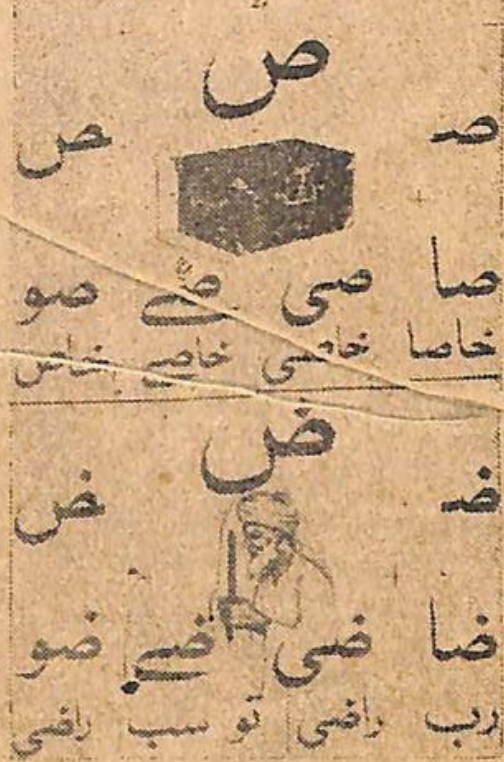 ص
صـ ـص
صا صی صے صو
خاصا خاصی خاصے خاص
ض
ضـ ـض
ضا ضی ضے ضو
رب راضی تو سب راضی